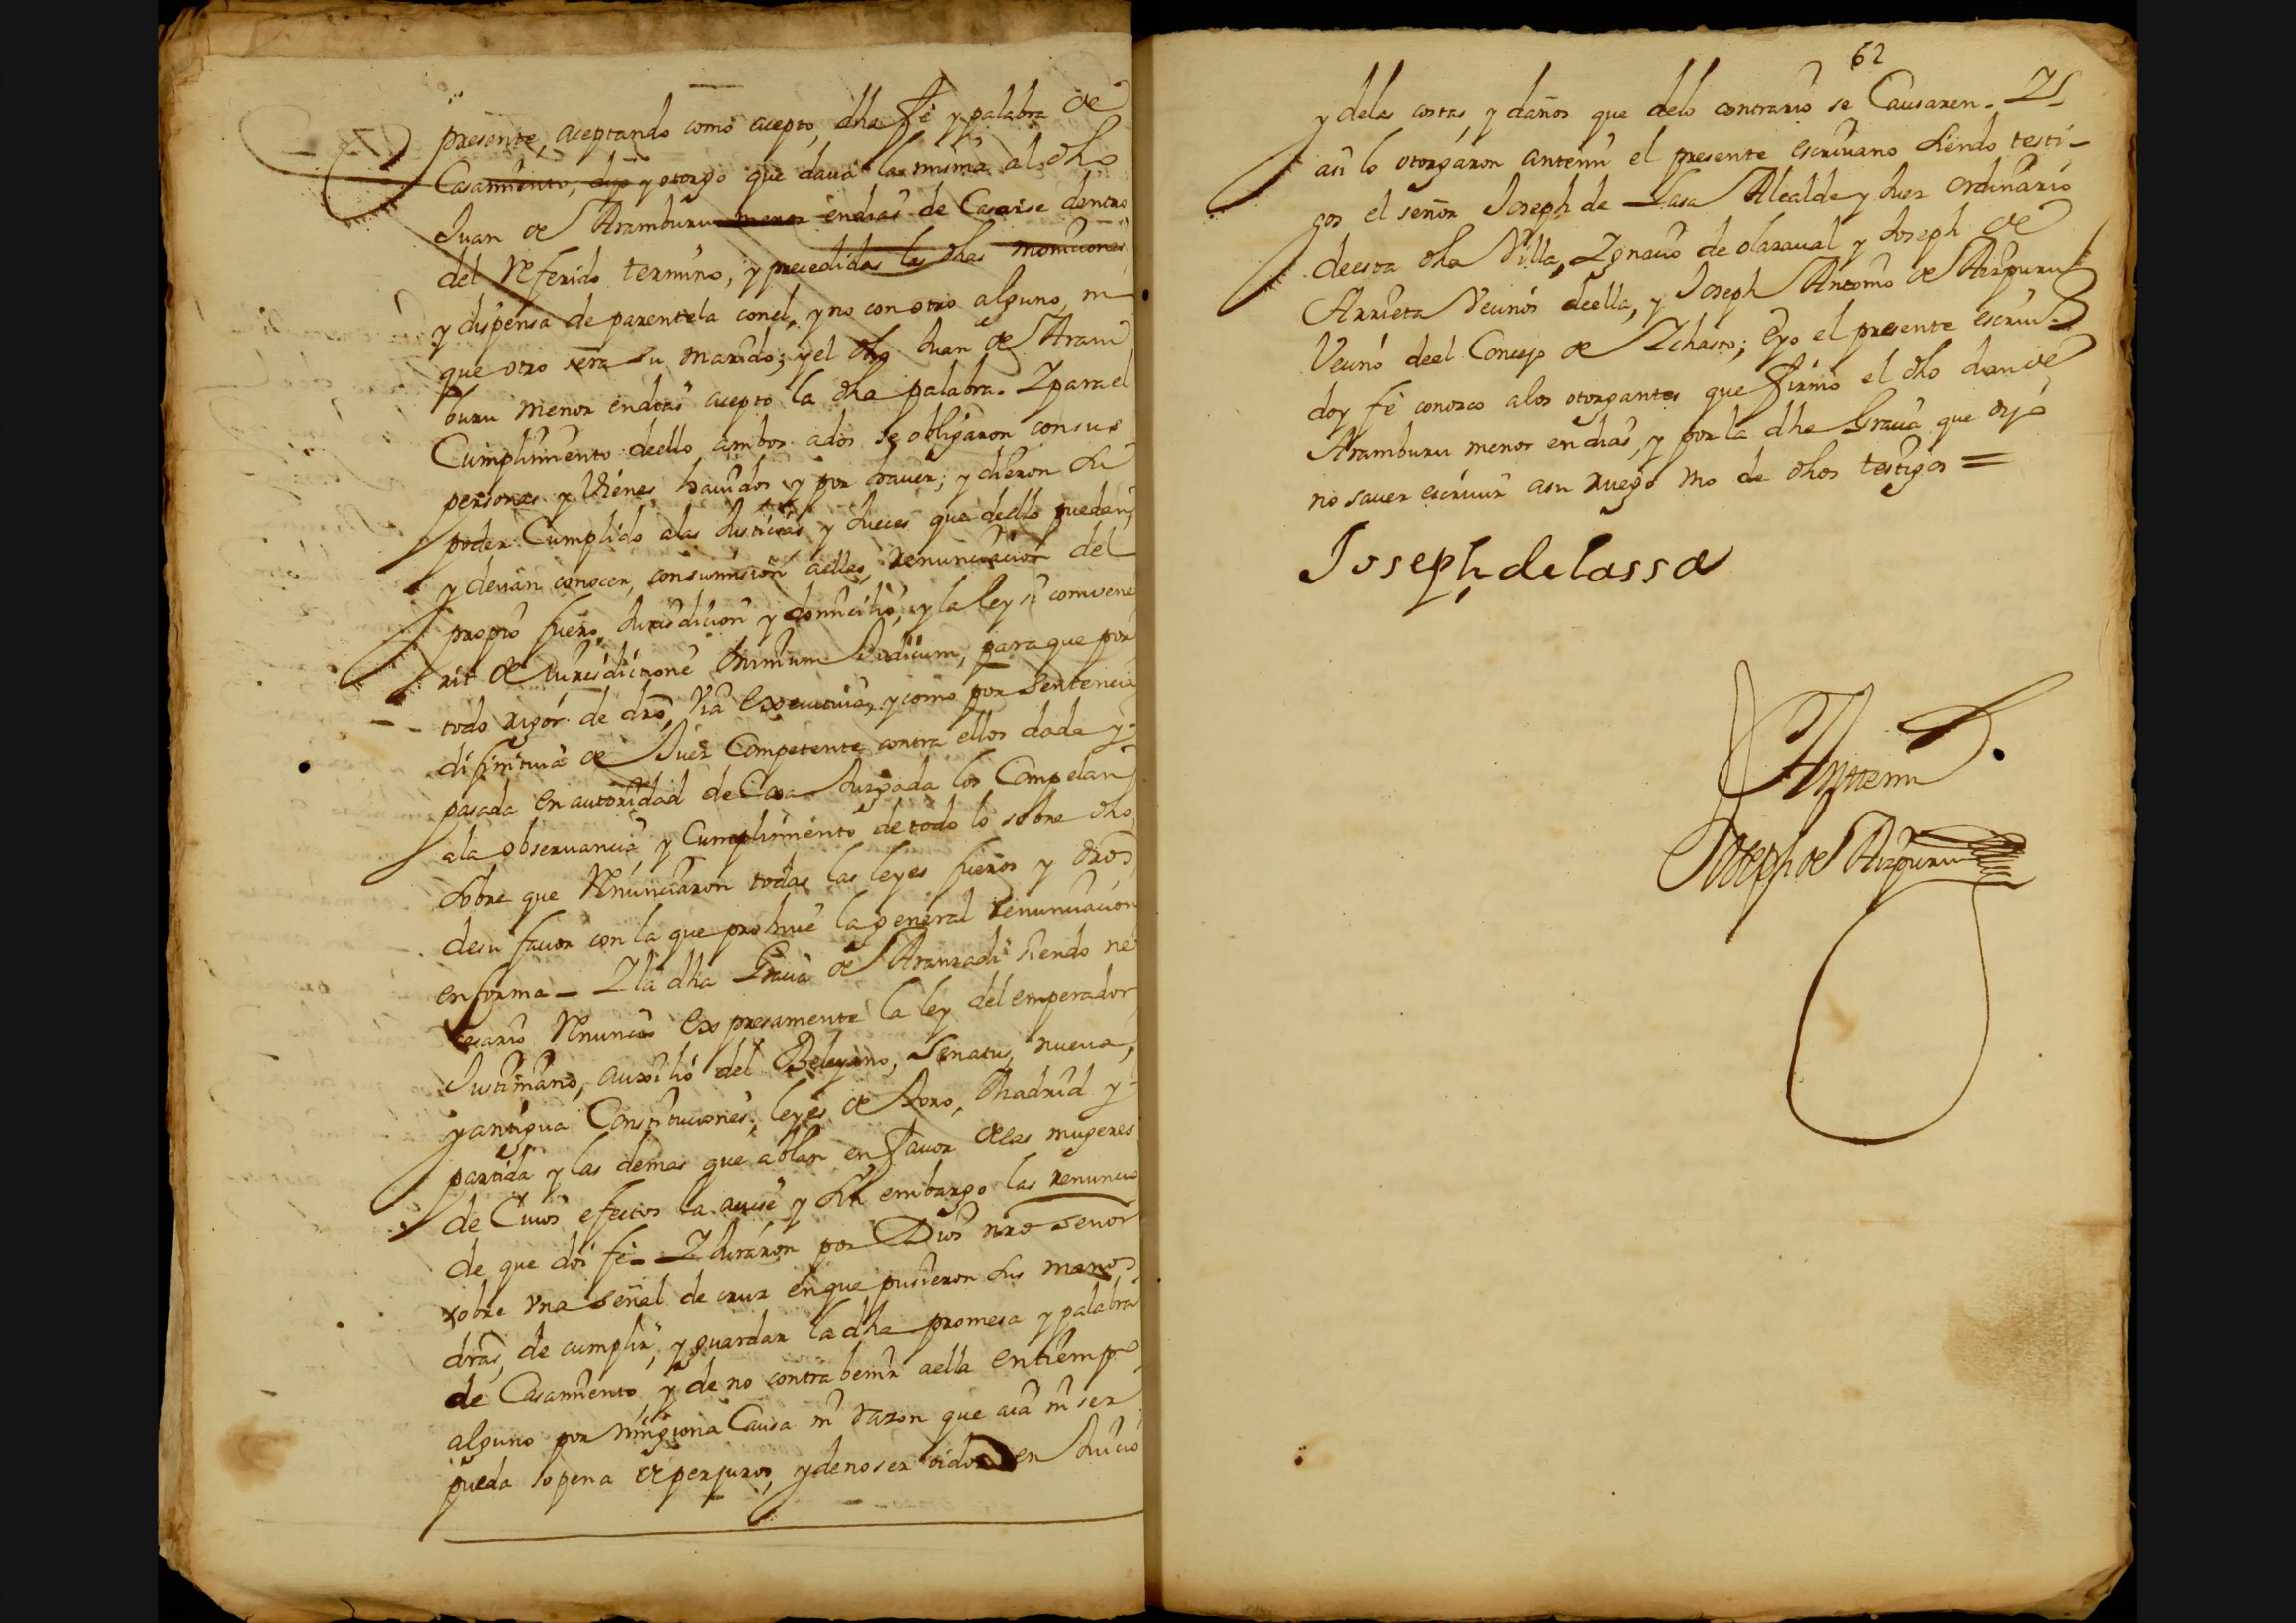 presente, aceptando como acepto, dha fè y palabra de
Casamiento, dijo y otorgo que daua la misma al dho
Juan de Aramburu menor en dias de Casarse dentro
del Referido termino, y precedidas las dhas moniciones
y dispensa de parentela con el, y no con otro alguno, ni
que otro sera su marido; y el dho Juan de Aram
buru menor en dias acepto la dha palabra. Y para el
Cumplimiento de ello ambos ados se obligaron con sus
personas y Vienes hauidos y por hauer; y dieron su
poder Cumplido a las Justicias y Jueces que de ello puedan,
y deuan conocer, con sumision a ellas, renunciacion del
proprio fuero, Jurisdicion y domicilio, y la ley si convene
rit de Jurisdictione omnium Judicum, para que por
todo rigor de dro, Via Executiua, y como por Sentencia
difinitiua de Juez Competente contra ellos dada y
pasada en autoridad de Cosa Jurgada los Compelan
a la obseruancia y Cumplimiento de todo lo sobre dho,
sobre que Renunciaron todas las leyes fueros y dros
de su fauor con la que prohiue la general renunciacion
en forma _ Y la dha Gracia de Aranzadi siendo ne
cesario Renuncio Expresamente la ley del emperador
Justiniano, auxilio del Beleyano, Senatus, nueua,
y antigua Constituciones, leyes de Toro, Madrid y
partida y las demas que ablan en fauor de las mugeres
de Cuios efectos la auise y sin embargo las renuncio
de que doi fè _ Y Juraron por Dios nro Señor
sobre vna señal de cruz en que pusieron sus manos
dras, de cumplir, y guardar la dha promesa y palabra
de Casamiento y de no contra benir a ella en tiempo
alguno por ningiona Causa ni razon que aia ni ser
pueda so pena de perjuros, y de no ser oidos en Juicio
62
y de las costas, y daños que de lo contrario se Causaren. Y
asi lo otorgaron ante mi el presente escriuano siendo testi-
gos el señor Joseph de Lasa Alcalde y Juez Ordinario
de esta dha Villa, Ygnacio de olazaual y Joseph de
Arrieta Vecinos de ella, y Joseph Antonio de Aizpuru
Vecino de el Concejo de Ychaso; e yo el presente escriuo
doy fè conozco a los otorgantes que firmo el dho Juan de
Aramburu menor en dias, y por la dha Gracia que dijo
no sauer escriuir a su ruego vno de dhos testigos =
Joseph de lassa
Ante mi
Joseph de Aizpuru